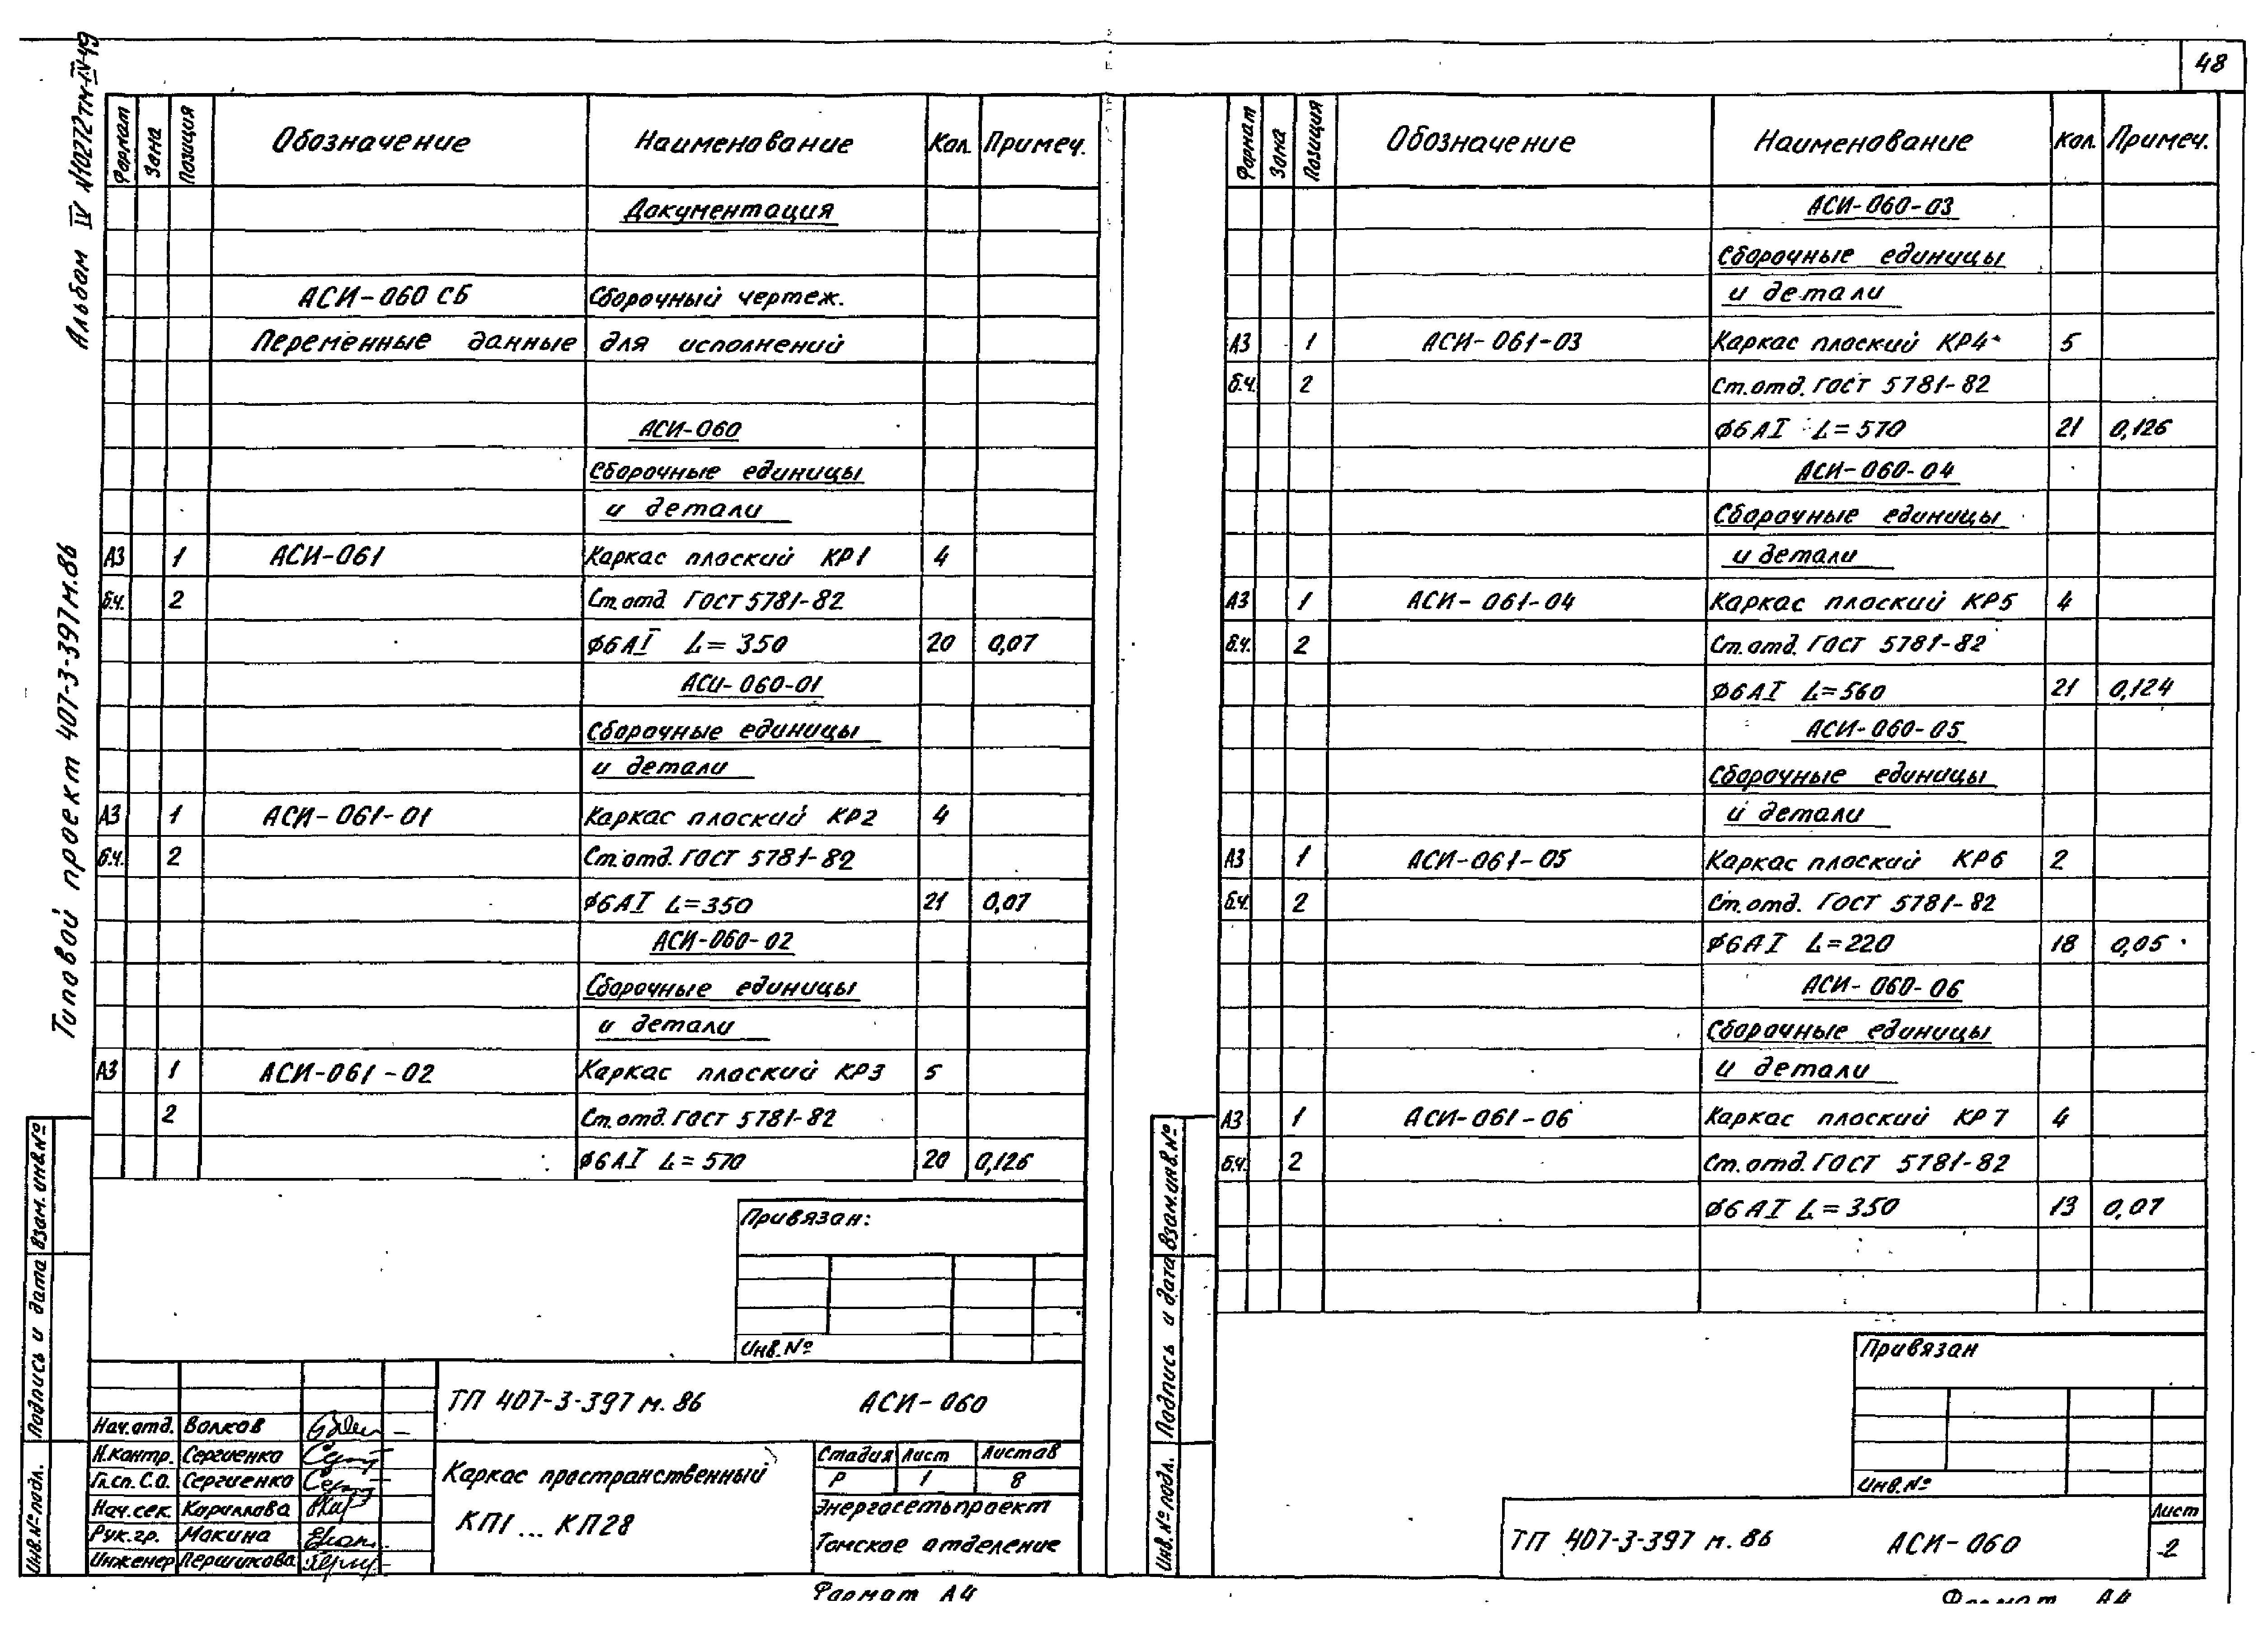 48
Альбом IV №10272тм-IV-49
Типовой проект 407-3-397м.86
Формат Зона Позиция Обозначение Наименование Кол. Примеч.
Документация
АСИ-060 СБ Сборочный чертеж.
Переменные данные для исполнений
АСИ-060
Сборочные единицы
и детали
А3 1 АСИ-061 Каркас плоский КР1 4
б.ч. 2 Ст.отд. ГОСТ 5781-82
Ø6АI L=350 20 0,07
АСИ-060-01
Сборочные единицы
и детали
А3 1 АСИ-061-01 Каркас плоский КР2 4
б.ч. 2 Ст.отд. ГОСТ 5781-82
Ø6АI L=350 21 0,07
АСИ-060-02
Сборочные единицы
и детали
А3 1 АСИ-061-02 Каркас плоский КР3 5
2 Ст.отд. ГОСТ 5781-82
Ø6АI L=570 20 0,126
Привязан:
Инв.№
ТП 407-3-397м.86 АСИ-060
Нач.отд. Волков
Н.контр. Сергиенко
Гл.сп.С.О. Сергиенко
Нач.сек. Кариллова
Рук.гр. Макина
Инженер Першикова
Каркас пространственный
КП1...КП28
Стадия Лист Листов
Р 1 8
Энергосетьпроект
Томское отделение
Формат А4
Взам.инв.№
Подпись и дата
Инв.№подл.
Формат Зона Позиция Обозначение Наименование Кол. Примеч.
АСИ-060-03
Сборочные единицы
и детали
А3 1 АСИ-061-03 Каркас плоский КР4 5
б.ч. 2 Ст.отд. ГОСТ 5781-82
Ø6АI L=570 21 0,126
АСИ-060-04
Сборочные единицы
и детали
А3 1 АСИ-061-04 Каркас плоский КР5 4
б.ч. 2 Ст.отд. ГОСТ 5781-82
Ø6АI L=560 21 0,124
АСИ-060-05
Сборочные единицы
и детали
А3 1 АСИ-061-05 Каркас плоский КР6 2
б.ч. 2 Ст.отд. ГОСТ 5781-82
Ø6АI L=220 18 0,05
АСИ-060-06
Сборочные единицы
и детали
А3 1 АСИ-061-06 Каркас плоский КР7 4
б.ч. 2 Ст.отд. ГОСТ 5781-82
Ø6АI L=350 13 0,07
Привязан
Инв.№
ТП 407-3-397 м.86 АСИ-060
Лист
2
Формат А4
Взам.инв.№
Подпись и дата
Инв.№подл.